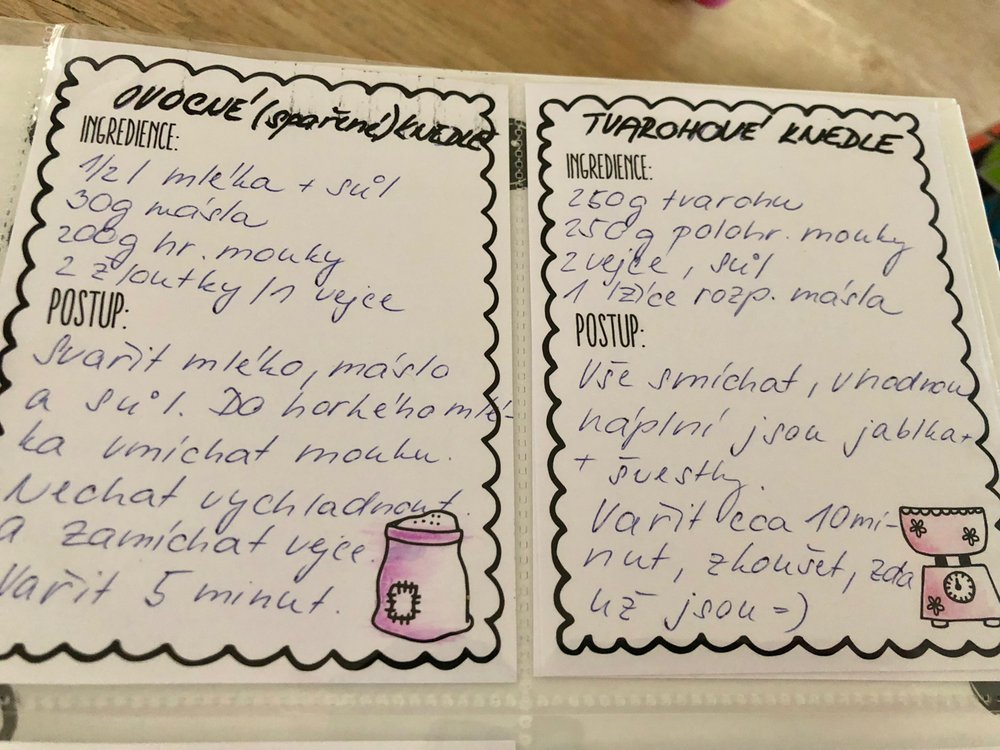 OVOCNÉ (spařené) KNEDLE
INGREDIENCE:
1/2 l mléka + sůl
30g másla
200g hr. mouky
2 žloutky / 1 vejce
POSTUP:
Svařit mléko, máslo
a sůl. Do horkého mlé-
ka vmíchat mouku.
Nechat vychladnout
a zamíchat vejce.
Vařit 5 minut.
TVAROHOVÉ KNEDLE
INGREDIENCE:
250g tvarohu
250g polohr. mouky
2 vejce, sůl
1 lžíce rozp. másla
POSTUP:
Vše smíchat, vhodnou
náplní jsou jablka +
+ švestky.
Vařit cca 10 mi-
nut, zkoušet, zda
už jsou =)